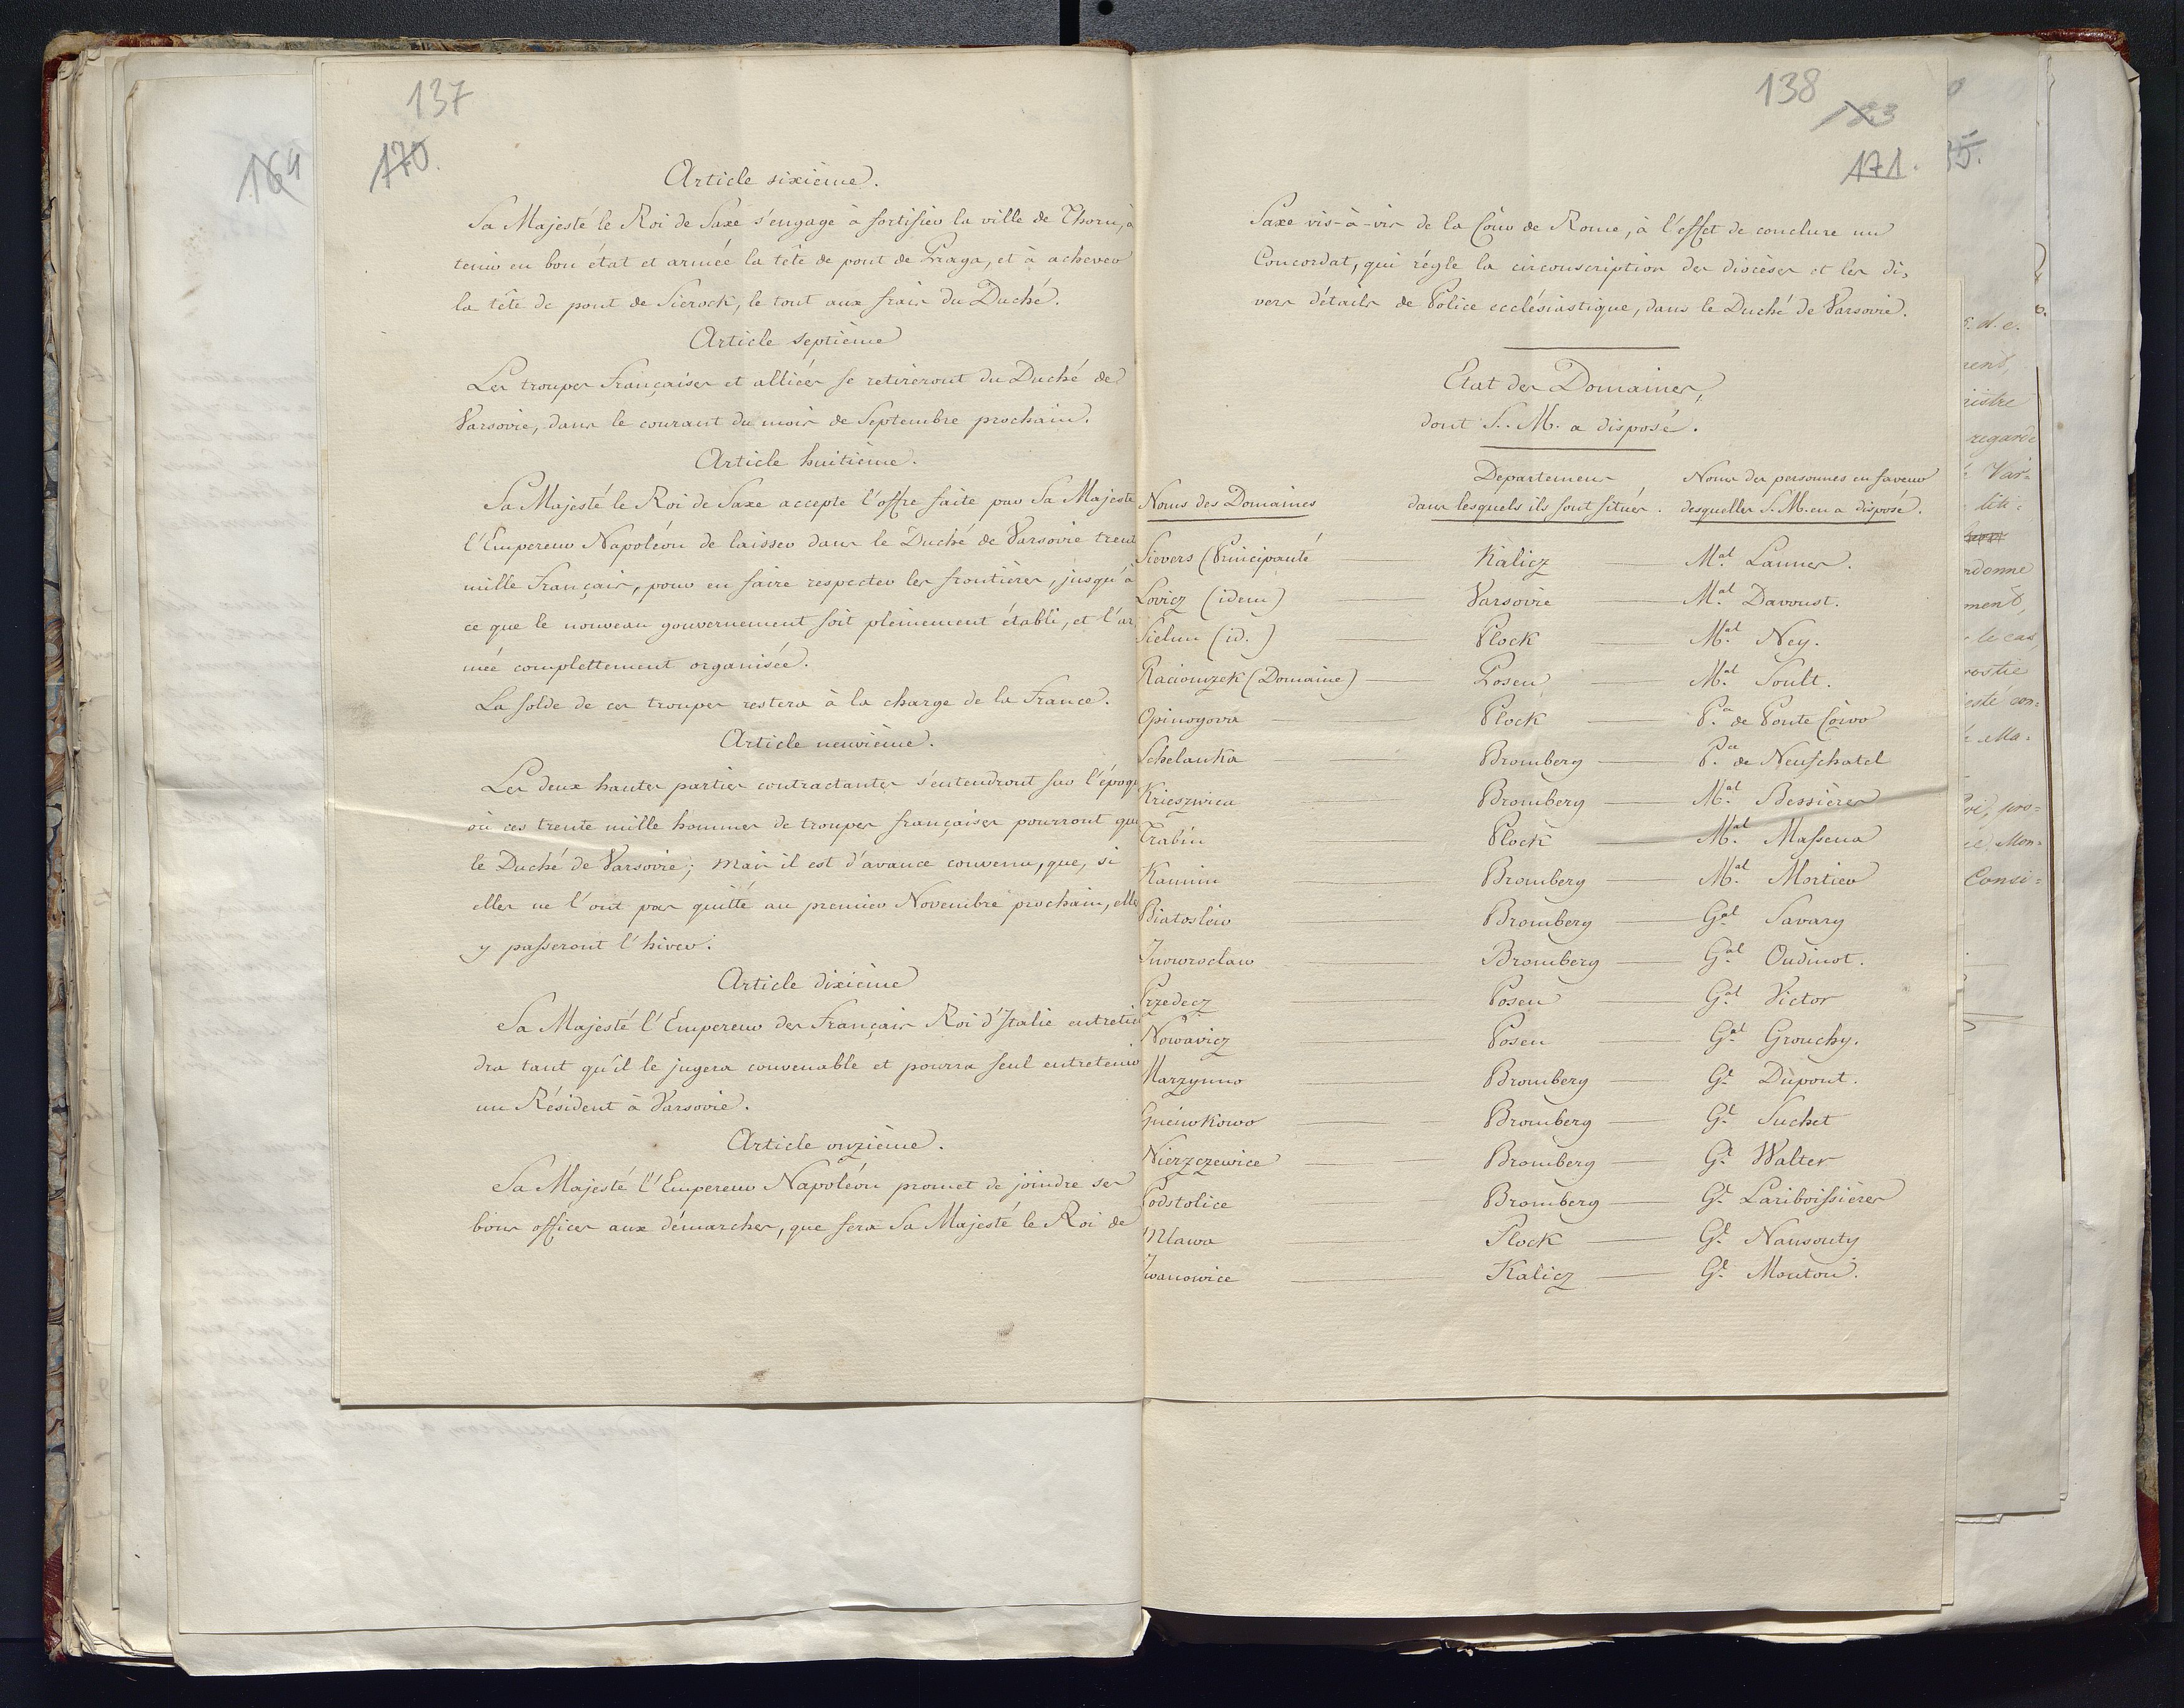 137
170.
164
Article sixième.
Sa Majesté le Roi de Saxe s'engage à fortifier la ville de Thorn, à
tenir en bon état et armée la tête de pont de Praga, et à achever
la tête de pont de Sierock, le tout aux frais du Duché.
Article septième
Les troupes françaises et alliées se retireront du Duché de
Varsovie, dans le courant du mois de Septembre prochain.
Article huitième.
Sa Majesté le Roi de Saxe accepte l'offre faite par Sa Majesté
l'Empereur Napoléon de laisser dans le Duché de Varsovie trent
mille Français, pour en faire respecter les frontières, jusqu'à
ce que le nouveau gouvernement soit pleinement établi, et l'ar
mée complettement organisée.
La solde de ces troupes restera à la charge de la France.
Article neuvième.
Les deux hautes parties contractantes s'entendront sur l'époq
où ces trente mille hommes de troupes françaises pourront qui
le Duché de Varsovie; mais il est d'avance convenu, que, si
elles ne l'ont pas quitté au premier Novembre prochain, elle
y passeront l'hiver.
Article dixième
Sa Majesté l'Empereur des Français Roi d'Italie entretie
dra tant qu'il le jugera convenable et pourra seul entretenir
un Résident à Varsovie.
Article onzième.
Sa Majesté l'Empereur Napoléon promet de joindre ses
bons offices aux démarches, que fera Sa Majesté le Roi de
138
183
171.
35.
Saxe vis-à-vis de la Cour de Rome, à l'effet de conclure un
Concordat, qui régle la circonscription des diocèses et les di=
vers détails de Police ecclésiastique, dans le Duché de Varsovie.
Etat des Domaines,
dont S. M. a disposé.
Noms des Domaines Departemens dans lesquels ils sont situés. Noms des personnes en faveur desquelles S. M. en a disposé.
Sievers (Principauté Kalicz Mal. Lannes.
Lovicz (idem) Varsovie Mal. Davoust.
Sielun (id.) Plock Mal. Ney.
Racionzek (Domaine) Posen Mal. Soult.
Opinogora Plock Pce. de Ponte Corvo
Schelanka Bromberg Pce. de Neufchatel
Krieszwica Bromberg Mal. Bessières
Trabin Plock Mal. Massena
Kamin Bromberg Mal. Mortier
Biatosliw Bromberg Gal Savary
Inowroclaw Bromberg Gal. Oudinot.
Przedecz Posen Gal. Victor
Nowavicz Posen Gal. Grouchy.
Marzynno Bromberg Gl. Dupont.
Gniewkowo Bromberg Gl. Suchet
Nierzczewice Bromberg Gl. Walter
Podstolice Bromberg Gl. Lariboissières
Mlawa Plock Gl. Nansouty
Iwanowice Kalicz Gl. Mouton.
regardé
Consi=